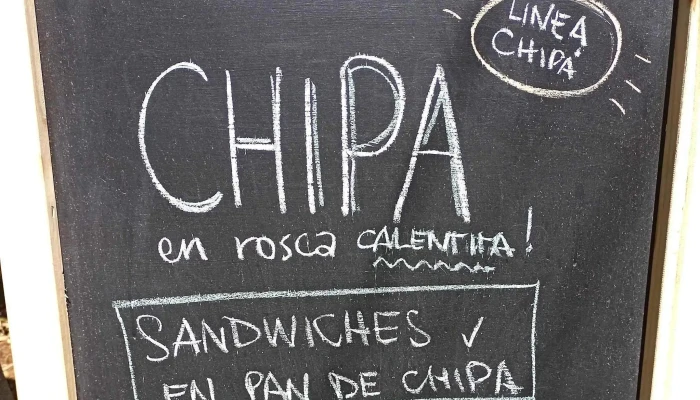 LINEA
CHIPA
CHIPA
en rosca CALENTITA!
SANDWICHES ✓
EN PAN DE CHIPA